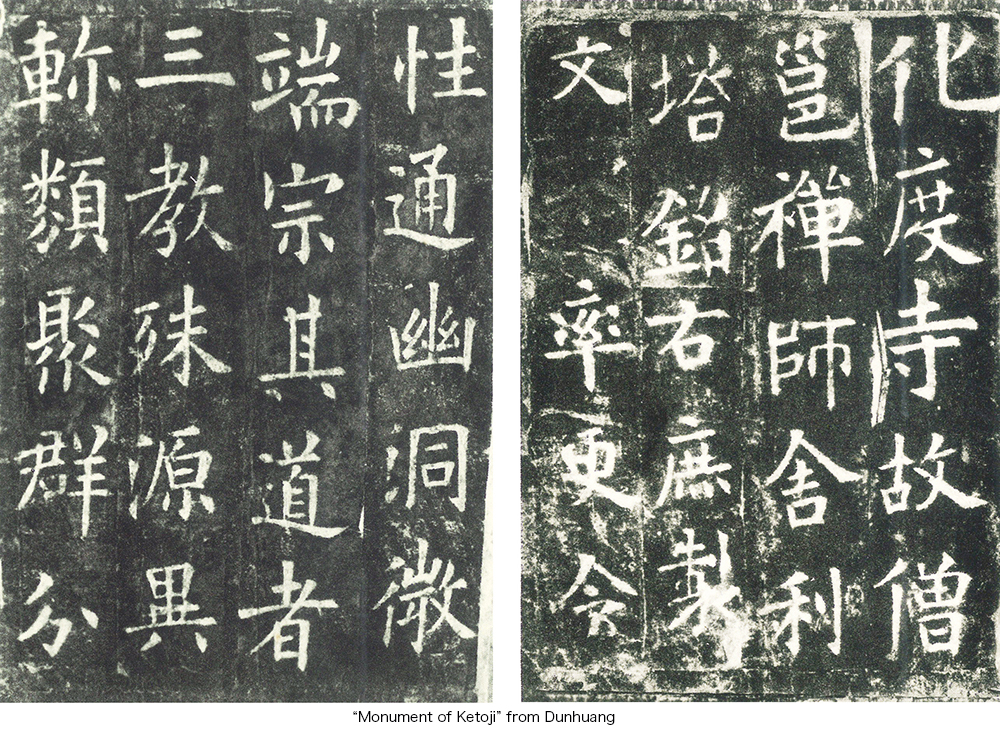 化度寺故僧
邕禪師舍利
塔銘右庶製
文 率更令
性通幽洞微
端宗其道者
三教殊源異
軫類聚群分
“Monument of Ketoji” from Dunhuang